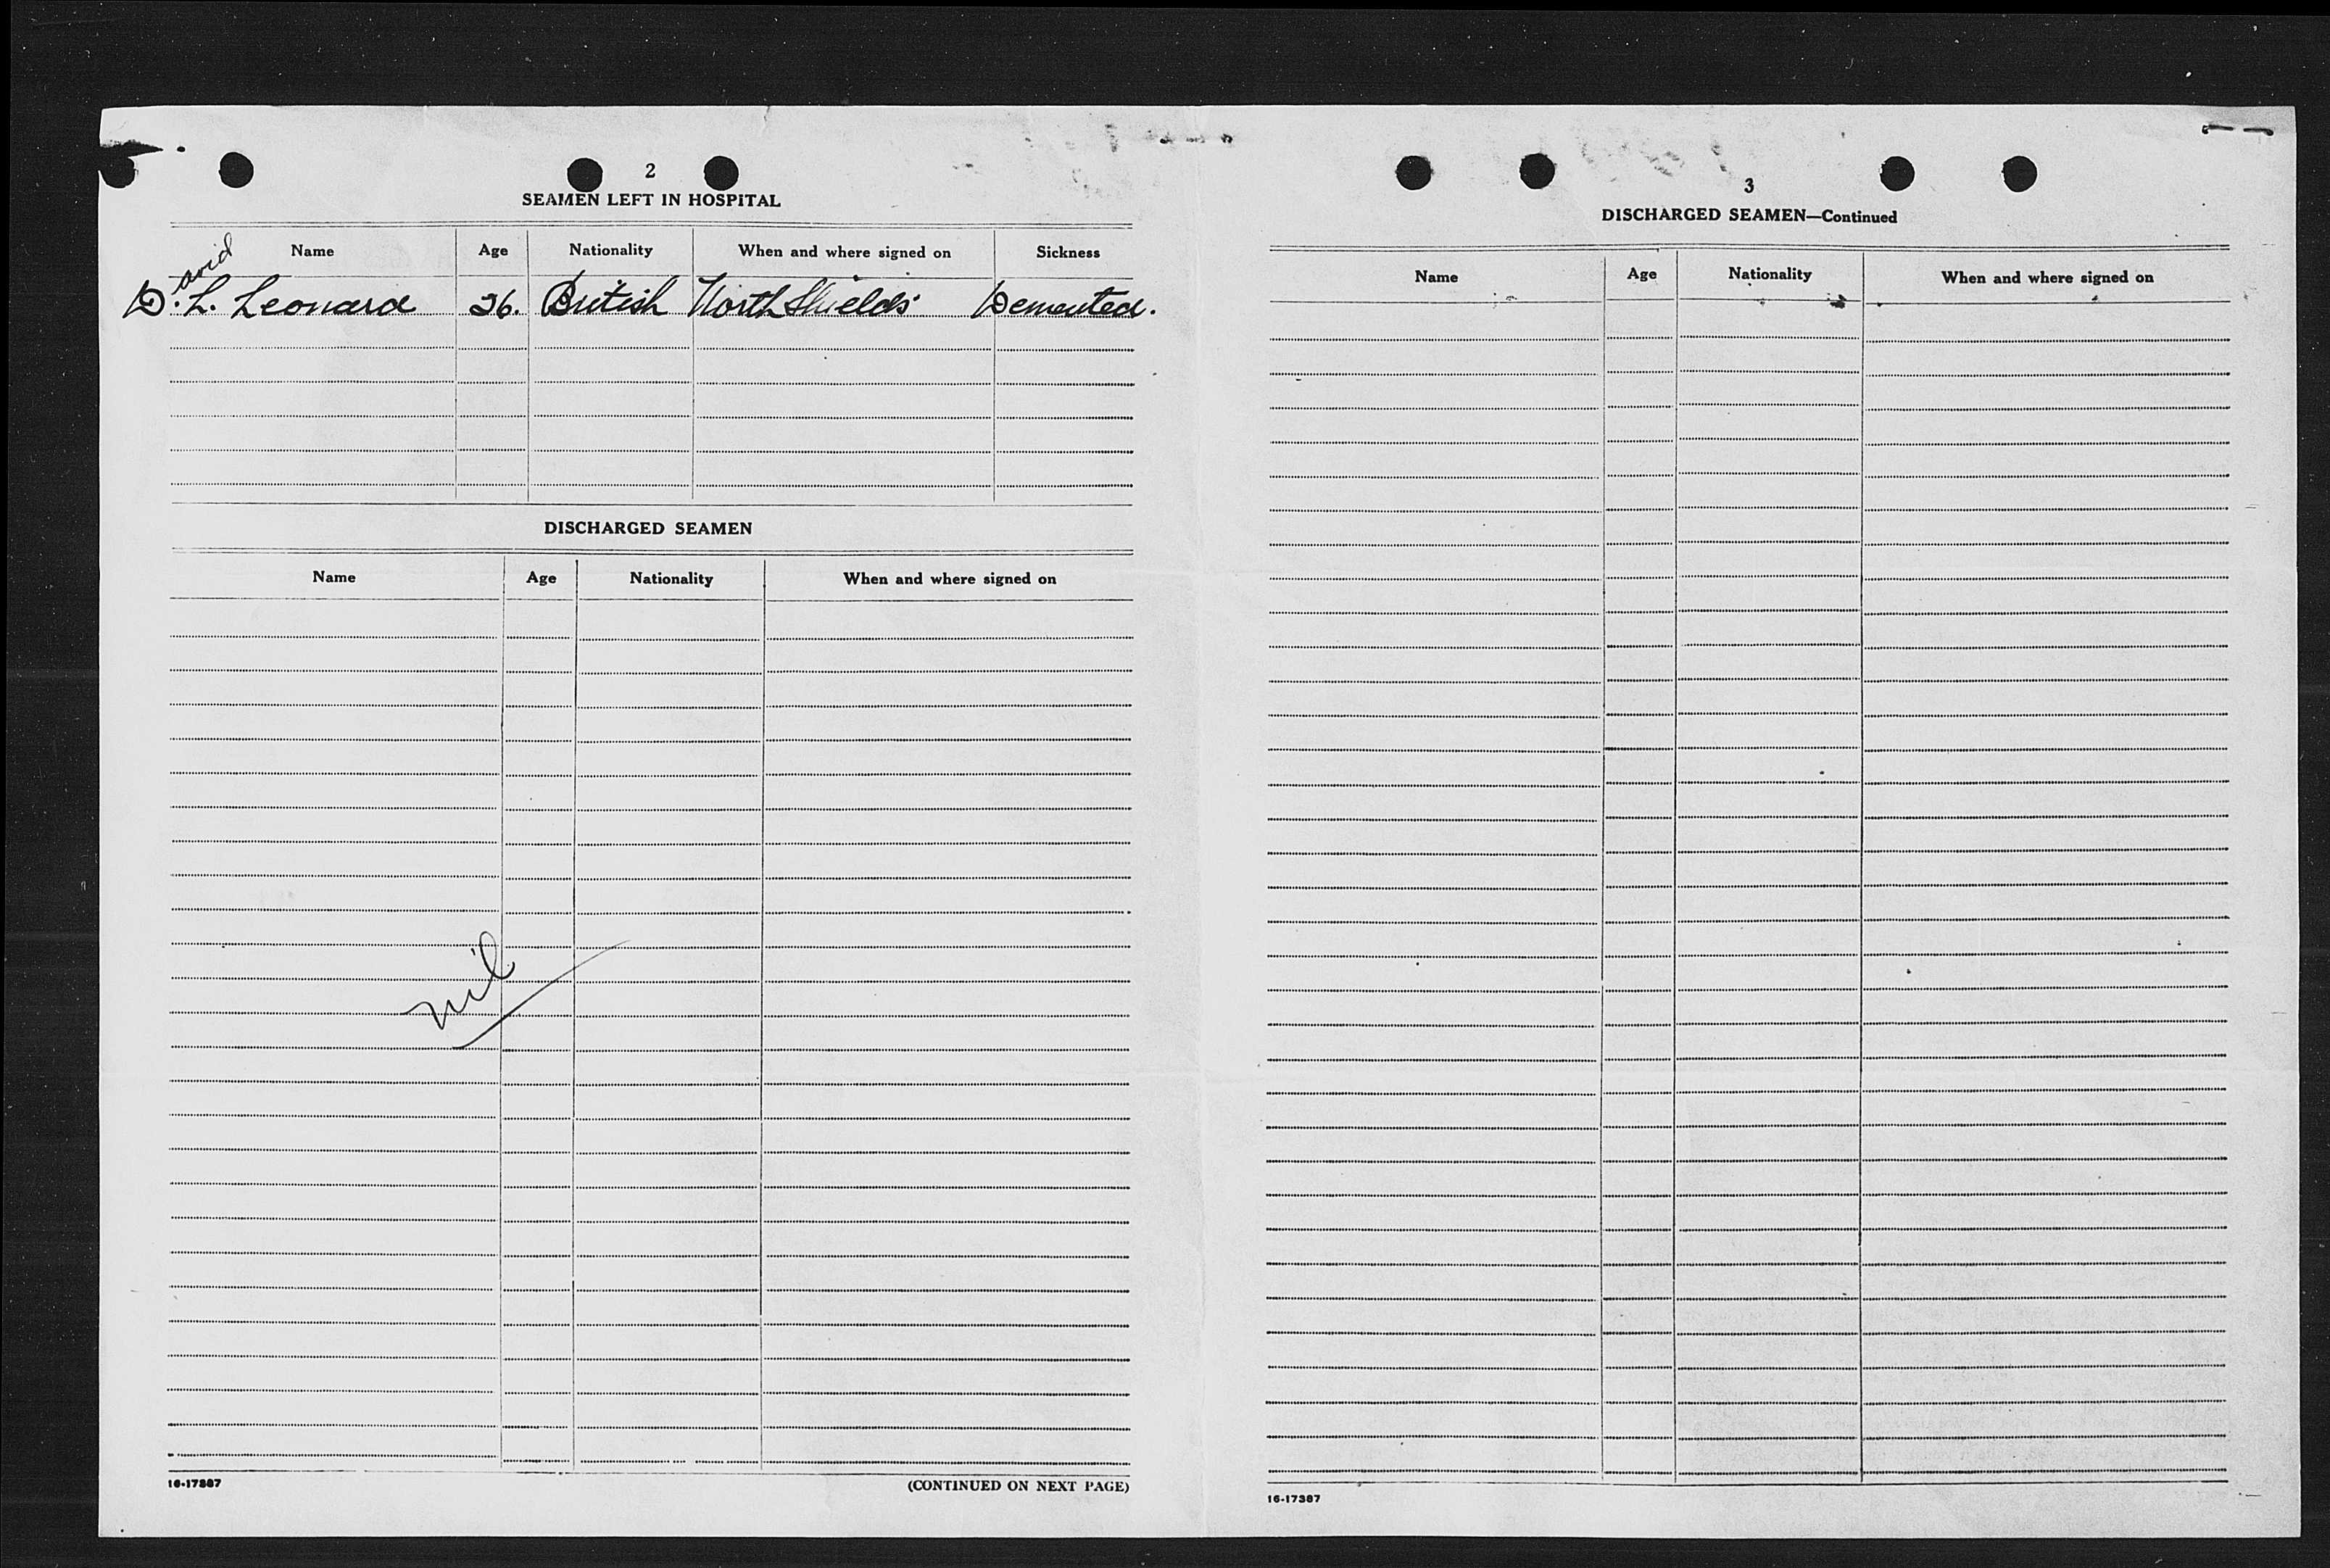 2
SEAMEN LEFT IN HOSPITAL
Name Age Nationality When and where signed on Sickness
avid
D. L. Leonard 26. British North Shields Demented.
DISCHARGED SEAMEN
Name Age Nationality When and where signed on
nil
16-17387 (CONTINUED ON NEXT PAGE)
3
DISCHARGED SEAMEN—Continued
Name Age Nationality When and where signed on
16-17387